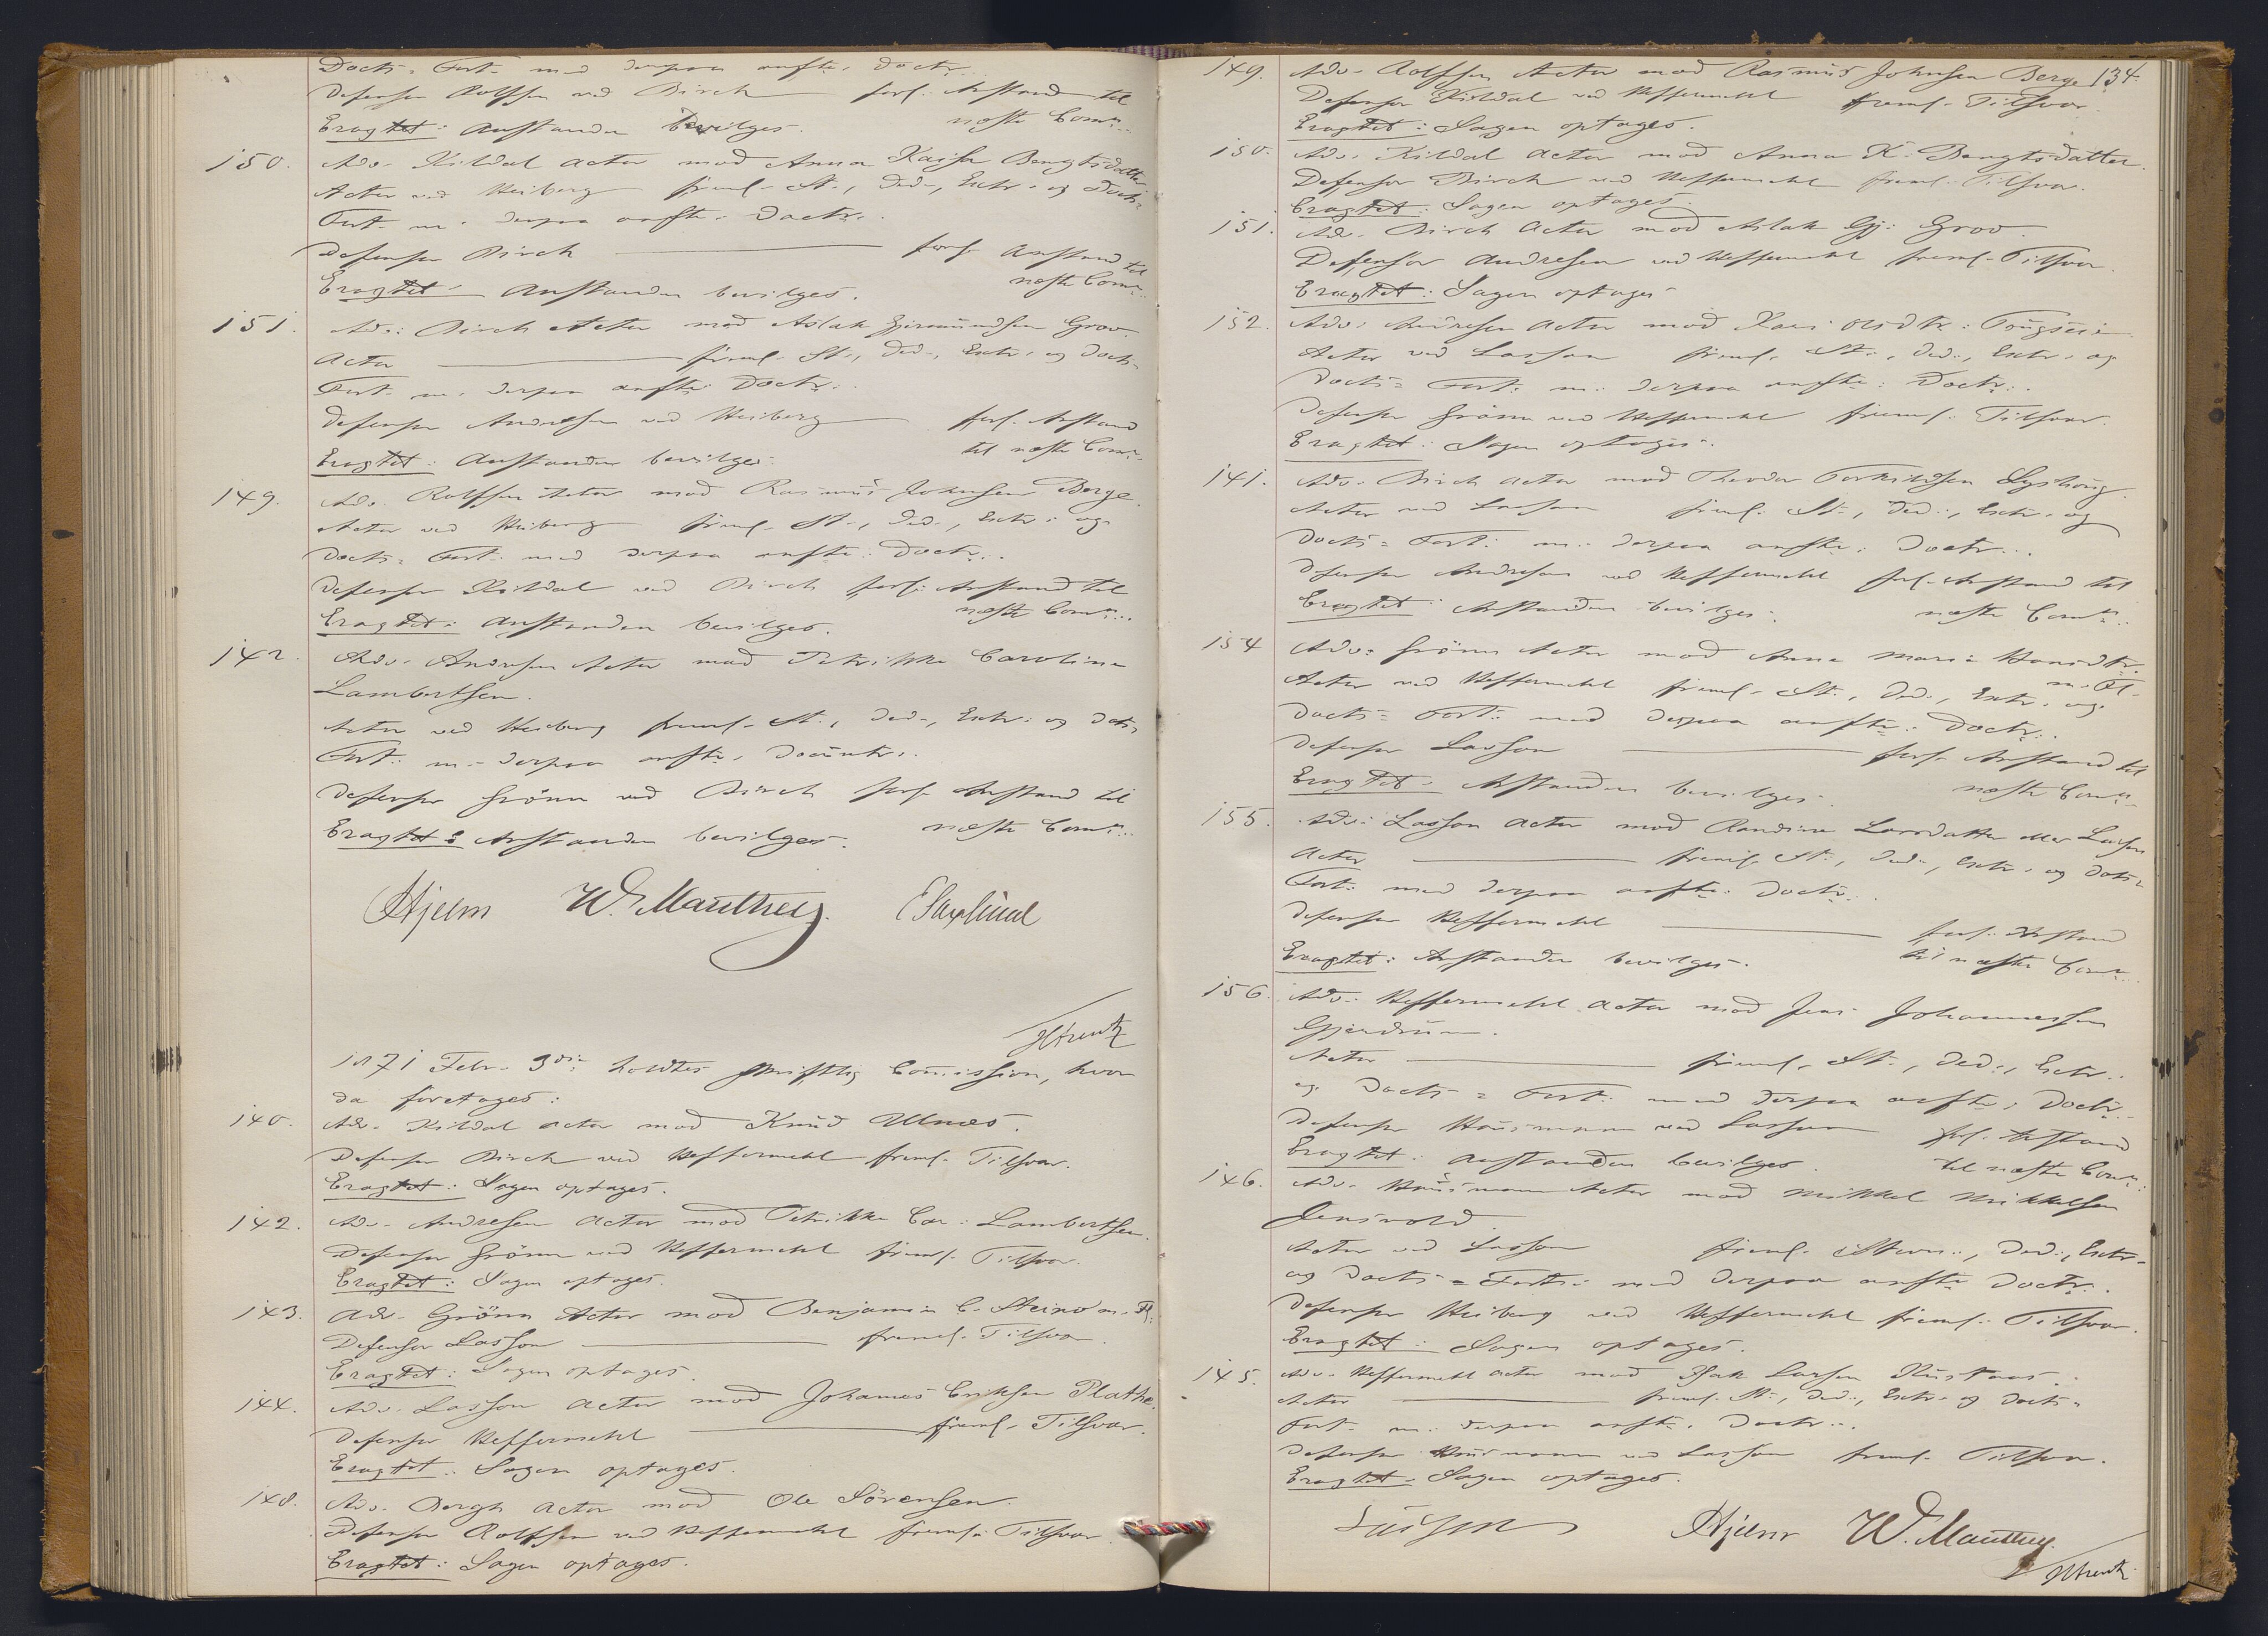 Docts. Fort. med derpaa anfte. Doctr.
Defensor Rolfsen ved Birch forl. Anstand til
næste Comn.
Eragtet: Anstanden bevilges.
150. Adv. Kildal Actor mod Anna Kajsa Bengtsdatter
Actor ved Heiberg freml. St., Ded., Extr. og Docts.
Fort. m. derpaa anfte. Doctr.
Defensor Birch forl. Anstand til
næste Comn.
Eragtet: Anstanden bevilges.
151. Adv. Birch Actor mod Aslak Gjermundsen Grov.
Actor freml. St., Ded., Extr. og Docts.
Fort. m. derpaa anfte. Doctr.
Defensor Andresen ved Heiberg forl. Anstand
til næste Comn.
Eragtet: Anstanden bevilges.
149. Adv. Rolfsen Actor mod Rasmus Johnsen Berge.
Actor ved Heiberg freml. St., Ded., Extr. og
Docts. Fort. med derpaa anfte. Doctr.
Defensor Kildal ved Birch forl. Anstand til
næste Comn.
Eragtet: Anstanden bevilges.
142. Adv. Andresen Actor mod Petrikke Caroline
Lambertsen.
Actor ved Heiberg freml. St., Ded., Extr. og Dots.
Fort. m. derpaa anfte. Documtr.
Defensor Grönn ved Birch forl. Anstand til
næste Comn.
Eragtet: Anstanden bevilges.
Hjelm W. Manthey. E Saxlund
1871 Febr. 3die holdtes skriftlig Comission, hvor
da foretoges:
140. Adv. Kildal Actor mod Knud Ulnes.
Defensor Birch ved Heffermehl freml. Tilsvar.
Eragtet: Sagen optages.
142. Adv. Andresen Actor mod Petrikke Car. Lambertsen.
Defensor Grönn ved Heffermehl freml. Tilsvar.
Eragtet: Sagen optages.
143. Adv. Grönn Actor mod Benjamin C. Steino m. Fl.
Defensor Lasson freml. Tilsvar.
Eragtet: Sagen optages.
144. Adv. Lasson Actor mod Johannes Eriksen Plathe.
Defensor Heffermehl freml. Tilsvar.
Eragtet: Sagen optages.
148. Adv. Bergh Actor mod Ole Sörensen.
Defensor Rolfsen ved Heffermehl freml. Tilsvar.
Eragtet: Sagen optages.
134.
149. Adv. Rolfsen Actor mod Rasmus Johnsen Berge
Defensor Kildal ved Heffermehl freml. Tilsvar.
Eragtet: Sagen optages.
150. Adv. Kildal Actor mod Anna K. Bengtsdatter.
Defensor Birch ved Heffermehl freml. Tilsvar.
Eragtet: Sagen optages.
151. Adv. Birch Actor mod Aslak Gj. Grov.
Defensor Andresen ved Heffermehl freml. Tilsvar.
Eragtet: Sagen optages
152. Adv. Andresen Actor mod Kari
Actor ved Lasson freml. St., Ded., Extr. og
Docts. Fort. m. derpaa anfte. Doctr.
Defensor Grönn ved Heffermehl freml. Tilsvar.
Eragtet: Sagen optages.
141. Adv. Birch Actor mod Theodor Torkildsen Lyshoug.
Actor ved Lasson freml. St., Ded., Extr. og
Docts. Fort. m. derpaa anfte. Doctr.
Defensor Andresen ved Heffermehl forl. Anstand til
næste Comn.
Eragtet: Anstanden bevilges.
154 Adv. Grönn Actor mod Anne Marie Hansdtr.
m. Fl.
Actor ved Heffermehl freml. St., Ded., Extr. og
Docts. Fort. med derpaa anfte. Doctr.
Defensor Lasson forl. Anstand til
næste Comn.
Eragtet: Anstanden bevilges.
155. Adv. Lasson Actor mod Randine Larsdatter eller Larsen
Actor freml. St., Ded., Extr. og Dots.
Fort. med derpaa anfte. Doctr.
Defensor Heffermehl forl. Anstand
til næste Comn.
Eragtet: Anstanden bevilges.
156. Adv. Heffermehl Actor mod Jens Johannessen
Gjerdrum.
Actor freml. St., Ded., Extr.
og Docts. Fort. med derpaa anfte. Doctr.
Defensor Housmann ved Lasson forl. Anstand
til næste Comn.
Eragtet: Anstanden bevilges.
146. Adv. Housmann Actor mod Mikkel Mikkelsen
Jensvold.
Actor ved Lasson freml. Stevn., Ded., Extr.
og Docts. Forts. med derpaa anfte Doctr.
Defensor Heiberg ved Heffermehl freml. Tilsvar.
Eragtet: Sagen optages.
145. Adv. Heffermehl Actor mod Isak Larsen Rustaas.
Actor freml. St., Ded., Extr. og Docts.
Fort. m. derpaa anfte. Doctr.
Defensor Housmann ved Lasson freml. Tilsvar.
Eragtet: Sagen optages.
Hjelm W. Manthey.